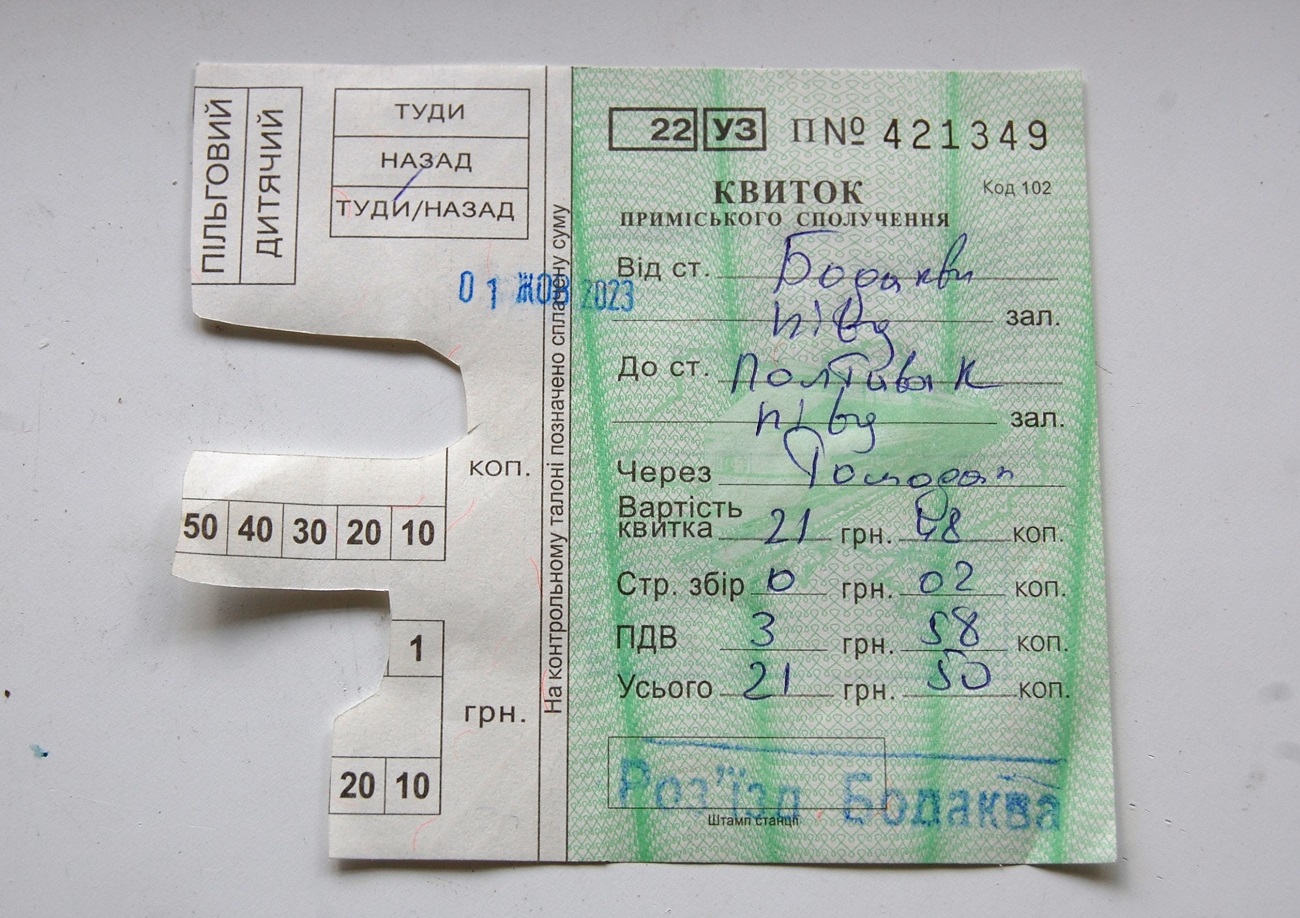 ПІЛЬГОВИЙ
ДИТЯЧИЙ
ТУДИ
НАЗАД
ТУДИ/НАЗАД
01 ЖОВ 2023
коп.
50 40 30 20 10
1
грн.
20 10
На контрольному талоні позначено сплачену суму
22 УЗ ПNº 421349
КВИТОК Код 102
ПРИМІСЬКОГО СПОЛУЧЕННЯ
Від ст. Бодакви
півд зал.
До ст. Полтава К
півд зал.
Через Гомодан
Вартість
квитка 21 грн. 48 коп.
Стр. збір 0 грн. 02 коп.
ПДВ 3 грн. 58 коп.
Усього 21 грн. 50 коп.
Роз'їзд Бодаква
Штамп станції